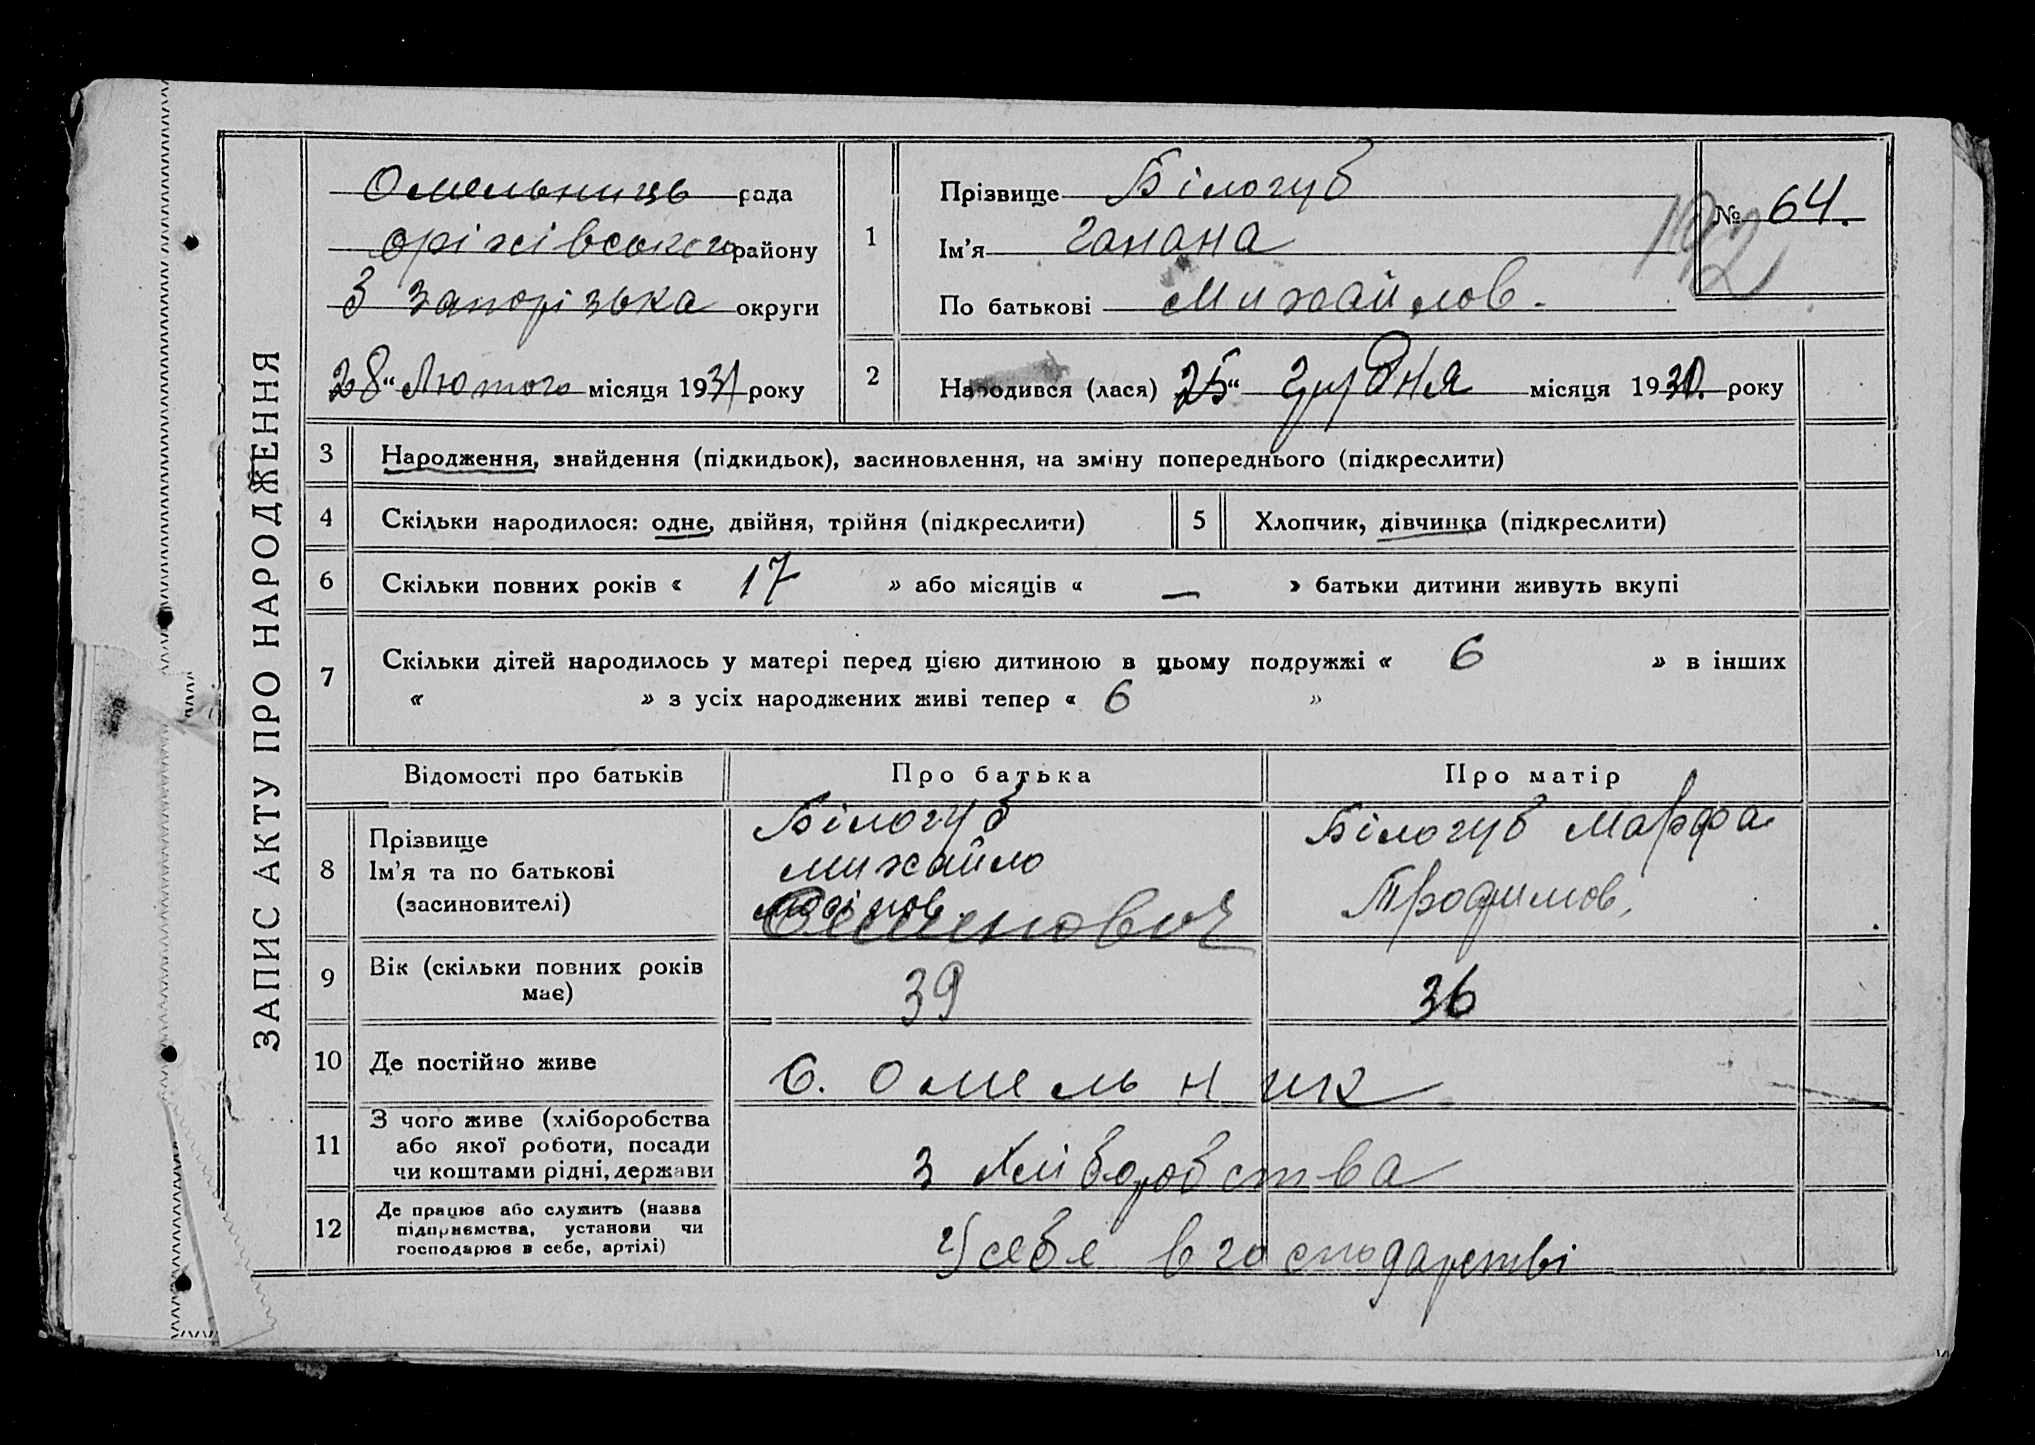 ЗАПИС АКТУ ПРО НАРОДЖЕННЯ
Омельниць рада
оріхівського району
З Запорізька округи
28 „ Лютого місяця 1931 року
1
Прізвище Білогуб
Ім'я Ганана
По батькові Михайлов.
№ 64.
192
2
Народився (лася) 25 „ Грудня місяця 1930. року
3 Народження, знайдення (підкидьок), засиновлення, на зміну попереднього (підкреслити)
4 Скільки народилося: одне, двійня, трійня (підкреслити) 5 Хлопчик, дівчинка (підкреслити)
6 Скільки повних років « 17 » або місяців « — » батьки дитини живуть вкупі
7 Скільки дітей народилось у матері перед цією дитиною в цьому подружжі « 6 » в інших
« » з усіх народжених живі тепер « 6 »
Відомості про батьків Про батька Про матір
8 Прізвище
Ім'я та по батькові
(засиновителі)
Білогуб
Михайло
Білогуб Марфа
Трофимов,
9 Вік (скільки повних років
має)
39 36
10 Де постійно живе С. Омельник
11 З чого живе (хліборобства
або якої роботи, посади
чи коштами рідні, держави
з хліборобства
12 Де працює або служить (назва
підприємства, установи чи
господарює в себе, артілі)
У себе в господарстві